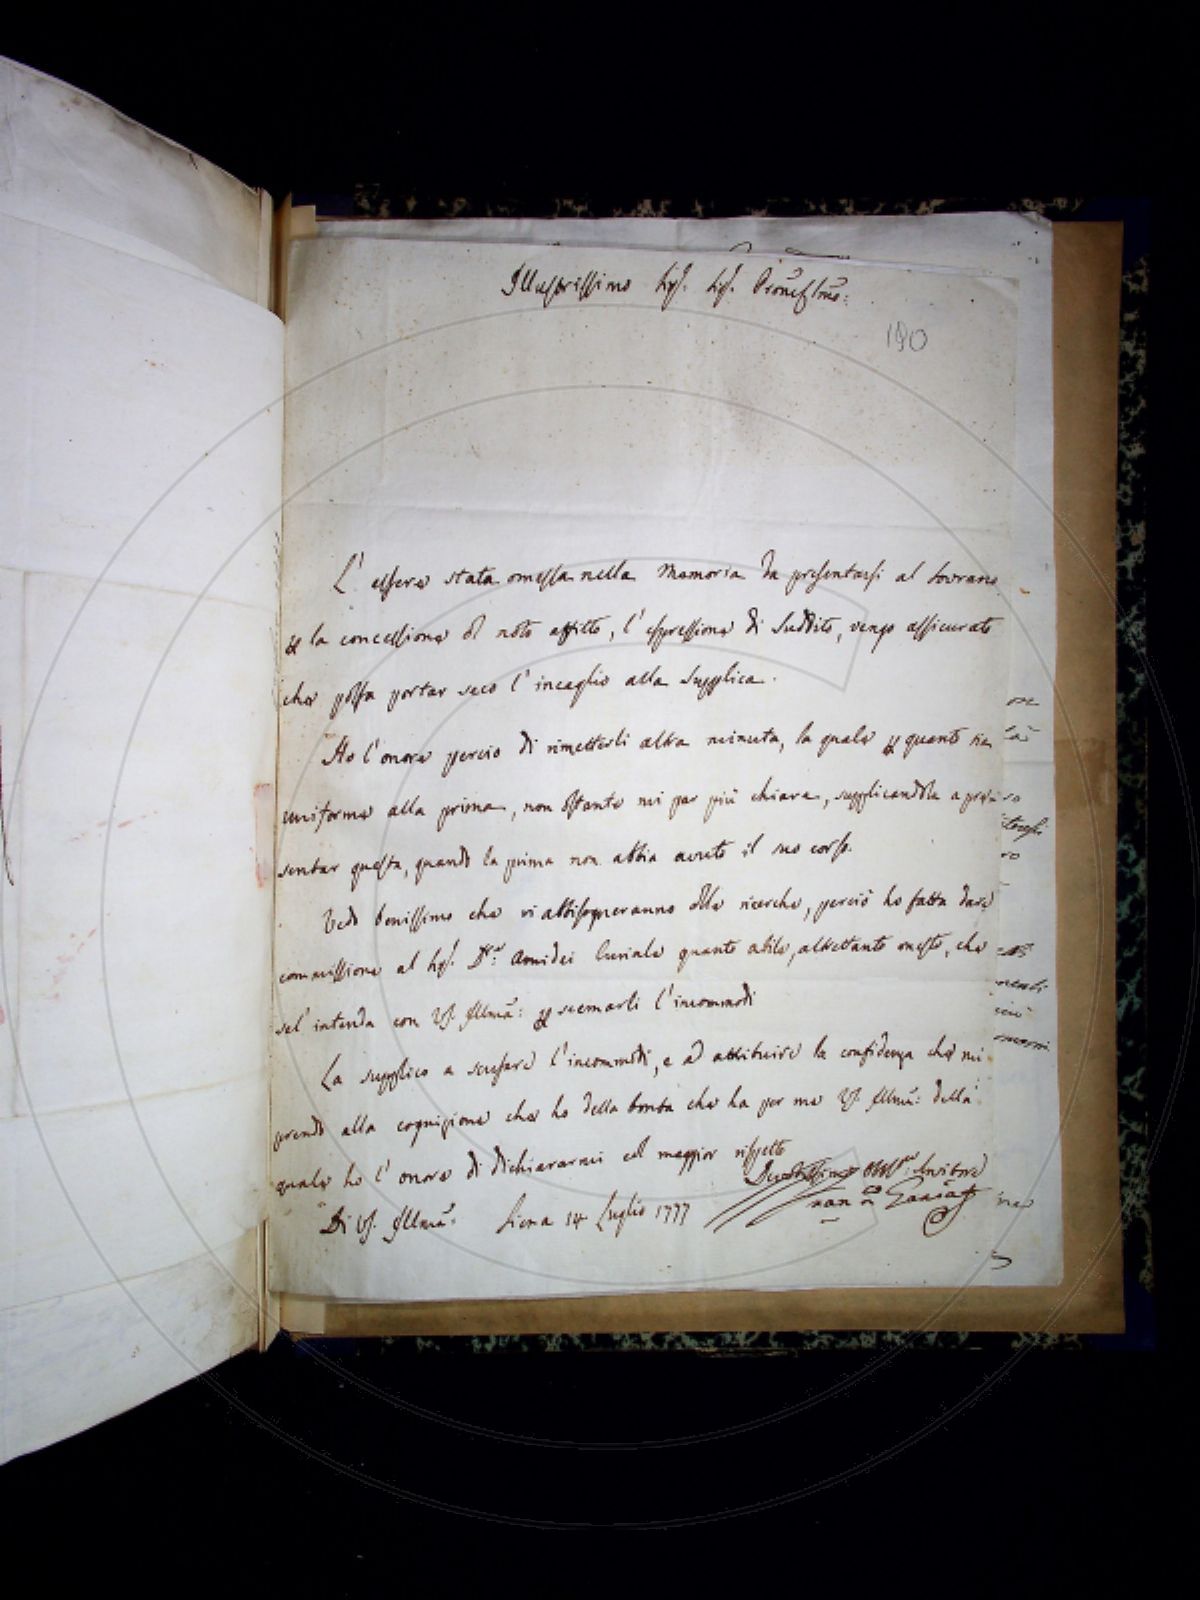 Illustrissimo Sig.r Sig.r Pron̄e Col̄mo:
190
L'essere stata omessa nella Memoria da presentarsi al Sovrano
p la concessione del noto affitto, l'espressione di Suddito, vengo assicurato
che possa portar seco l'incaglio alla Supplica.
Ho l'onore percio di rimetterli altra minuta, la quale p quanto sia
uniforme alla prima, non ostante mi par più chiara, supplicandola a pre
sentar questa, quando la prima non abbia avuto il suo corso.
Vedo benissimo che vi abbisogneranno delle ricerche, perciò ho fatta dare
commissione al Sig.r D.re Amidei Curiale quanto abile, altrettanto onesto, che
sel' intenda con VS. Illmā: p scemarli l'incommodi
La supplico a scusare l'incommodi, e ad attribuire la confidenza che mi
prendo alla cognizione che ho della bontà che ha per me VS. Illmā: della
quale ho l'onore di dichiararmi col maggior rispetto
Di VS. Illmā: Siena 14 Luglio 1777
Devotissimo Obb.mo Servitore